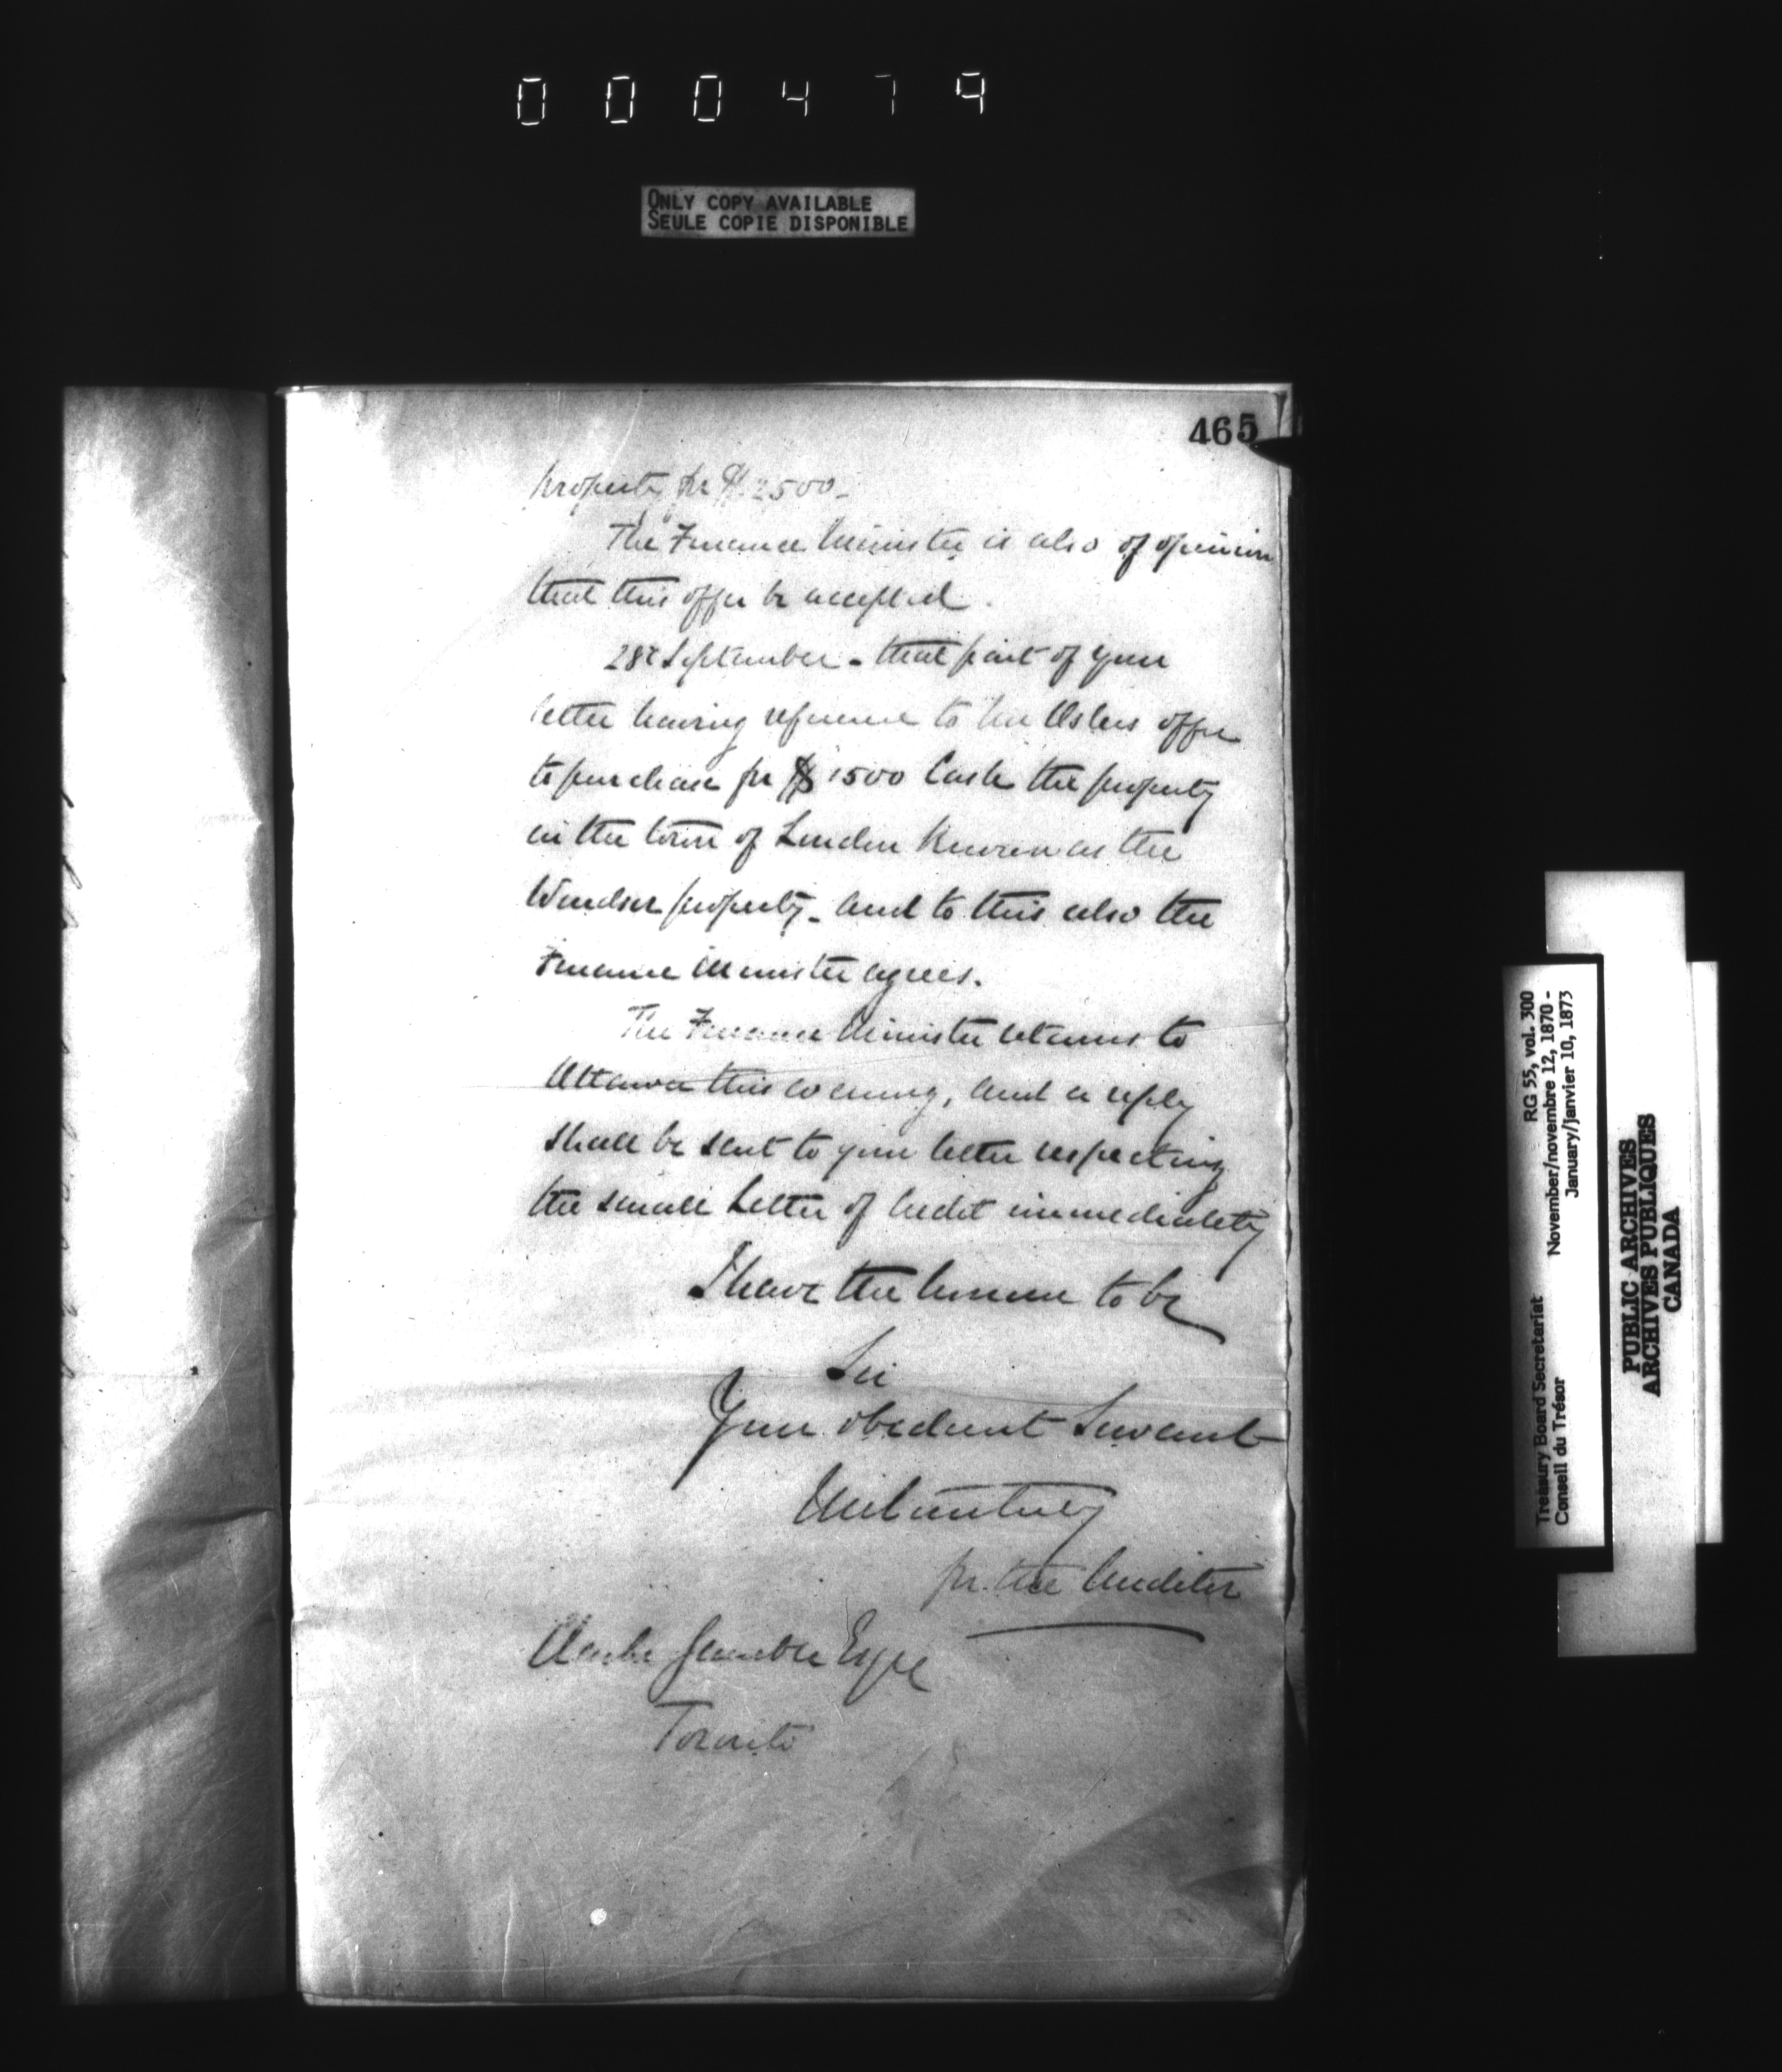 000479
ONLY COPY AVAILABLE
SEULE COPIE DISPONIBLE
465
property for $2500_
The Finance Minister is also of opinion
that this offer be accepted.
28th September - that part of your
letter having reference to Mr Oslers offer
to purchase for $1500 Cash the property
in the town of London Known as the
Windsor property_ and to this also the
Finance Minister agrees.
The Finance Minister returns to
Ottawa this evening, and a reply
shall be sent to your letter respecting
the small Letter of Credit immediately
I have the honour to be
Sir
Your obedient Servant
for the Auditor
Clarke Gamble Esqre
Toronto
Treasury Board Secretariat RG 55, vol. 300
Conseil du Trésor November/novembre 12, 1870 -
January/janvier 10, 1873
PUBLIC ARCHIVES
ARCHIVES PUBLIQUES
CANADA